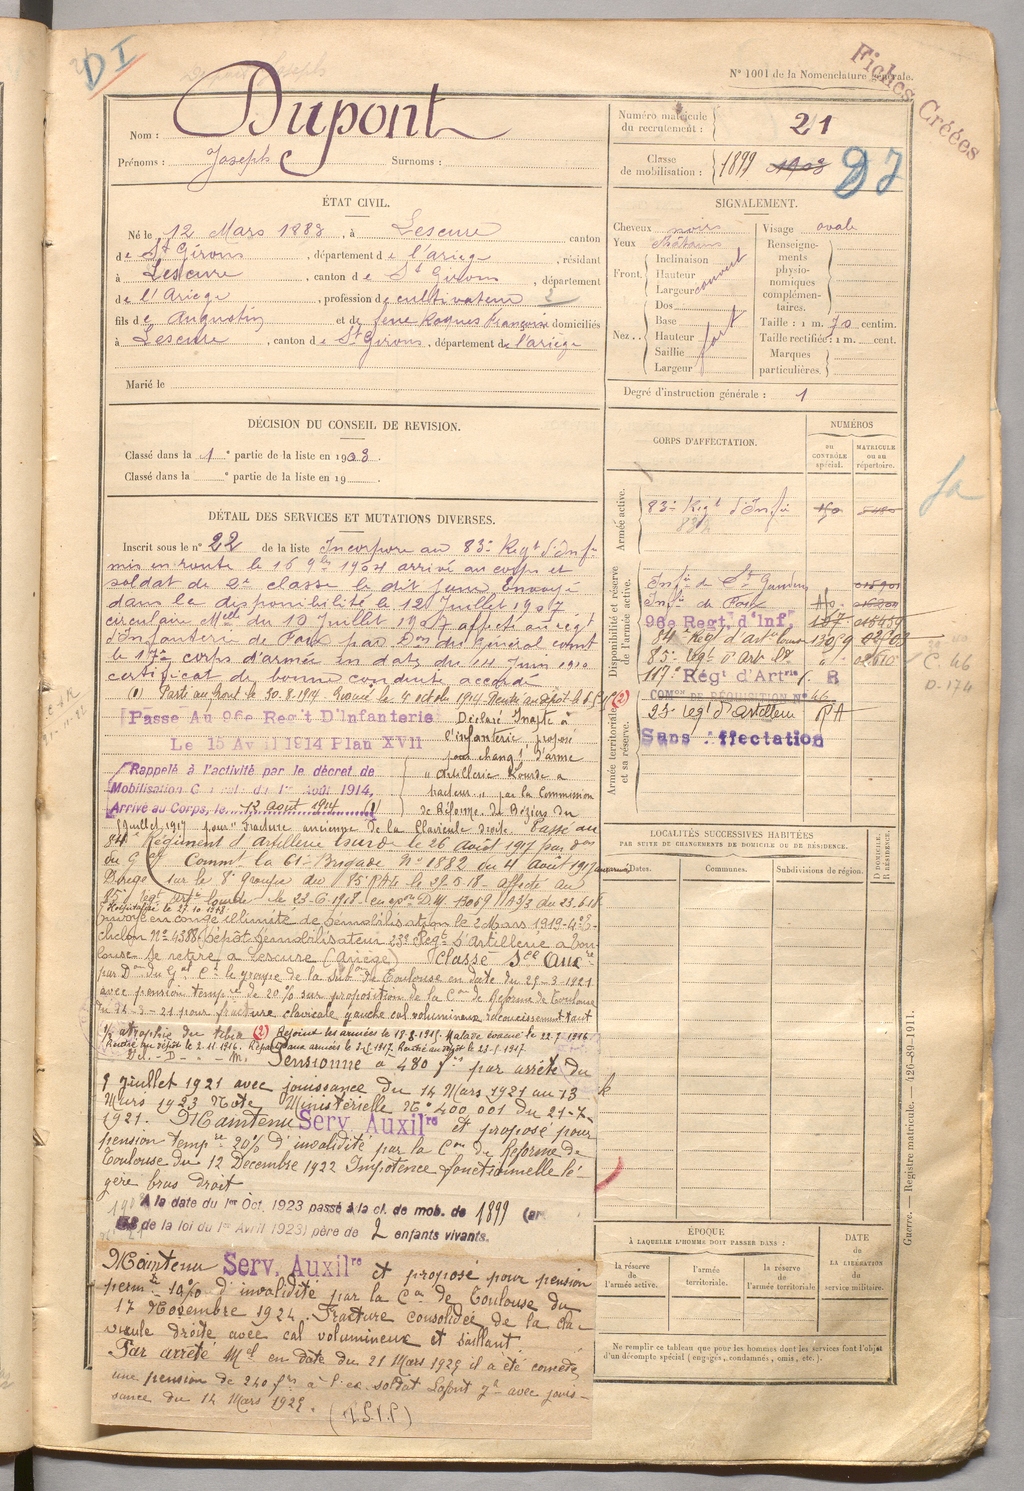 DI
N° 1001 de la Nomenclature générale.
Fiches Créées
Nom : Dupont
Prénoms : Joseph Surnoms :
Numéro matricule du recrutement : 21
Classe de mobilisation : 1899 1903
ÉTAT CIVIL.
Né le 12 Mars 1883, à Lescure canton
de St Girons, département de l'Ariège, résidant
à Lescure, canton de St Girons, département
de l'Ariège, profession de cultivateur 2
fils de Augustin et de feue Roques Françoise domiciliés
à Lescure, canton de St Girons, département de l'ariège
Marié le
SIGNALEMENT.
Cheveux noirs
Yeux châtains
Front. Inclinaison Hauteur Largeur couvert
Nez. Dos Base Hauteur Saillie Largeur fort
Visage ovale
Renseignements physionomiques complémentaires.
Taille : 1 m. 70 centim.
Taille rectifiée : 1 m. cent.
Marques particulières.
Degré d'instruction générale : 1
DÉCISION DU CONSEIL DE REVISION.
Classé dans la 1e partie de la liste en 1903.
Classé dans la e partie de la liste en 19
DÉTAIL DES SERVICES ET MUTATIONS DIVERSES.
Inscrit sous le n° 22 de la liste Incorporé au 83e Regt d'Inf
mis en route le 16 9bre 1904 arrivé au corps et
soldat de 2e classe le dit jour Envoyé
dans la disponibilité le 12 Juillet 1907
circulaire Melle du 10 Juillet 1907 affecté au regt
d'Infanterie de Foix par Don du Général comt
le 17e corps d'armée en date du 14 Juin 1910
certificat de bonne conduite accordé
(1) Parti au front le 30.8.1914. Evacué le 4 octobre 1914 Rentré au dépôt le
Passé Au 96e Regt D'Infanterie
Le 15 Avril 1914 Plan XVII
Rappelé à l'activité par le décret de
Mobilisation Générale du 1er Août 1914,
Arrivé au Corps, le 12 août 1914 (1)
Déclaré Inapte à
l'infanterie proposé
pour changt d'arme
" Artillerie Lourde à
tracteur " par la Commission
de Réforme de Béziers du
Juillet 1917 pour " fracture ancienne de la Clavicule droite. Passé au
84e Régiment d'Artillerie Lourde le 26 août 1917 par don
du Gal Commt la 61e Brigade N° 1882 du 4 Août 1917
Dirigé sur le 8e groupe du 85e RAL le 27-5-18 - affecté au
85e regt arte lourde le 23-6-1918 - 13069 1 A3/3 du 23.6.18
Hospitalisé le 27.10.1918
envoyé en congé illimité de démobilisation le 2 Mars 1919 - 4e E-
chelon N° 4388 dépôt démobilisateur 23e Regt d'Artillerie à Tou-
louse Se retire à Lescure (Ariège) Classé Sce Auxre
par Don du Gal Ct le groupe de la Subon de Toulouse en date du 29-3-1921
avec pension tempre de 20% sur proposition de la Con de Réforme de Toulouse
du 14-3-21 pour fracture clavicule gauche cal volumineux
atrophie du (2) Rejoint les armées le 18.8.1915. Malade évacué le 22.9.1916
Rentré au dépôt le 2.11.1916. Rentré au dépôt le 23.9.1917
Pensionné à 480 frs par arrêté du
9 Juillet 1921 avec jouissance du 14 Mars 1921 au 13
Mars 1923 Note Ministérielle N° 400,001 du 21-7-
1921. Maintenu Serv. Auxilre et proposé pour
pension tempre 20% d'invalidité par la Con de Réforme de
Toulouse du 12 Decembre 1922 Impotence fonctionnelle lé-
gère bras droit
A la date du 1er Oct. 1923 passé à la cl. de mob. de 1899 (art
de la loi du 1er Avril 1923) père de 2 enfants vivants.
Maintenu Serv. Auxilre et proposé pour pension
perm. te 10% d'invalidité par la Con de Toulouse du
17 Novembre 1924. Fracture consolidée de la cla-
vicule droite avec cal volumineux et saillant.
Par arrêté Mel en date du 21 Mars 1925 il a été concédé
une pension de 240 frs à l'ex soldat avec jouis-
sance du 14 Mars 1925.
CORPS D'AFFECTATION.
NUMÉROS
au CONTRÔLE spécial.
MATRICULE ou au répertoire.
Armée active.
83e Regt d'Infie
Disponibilité et réserve de l'armée active.
Infie de St Gaudens
Infie de Foix
96e Regt. d'Inf.
84e Régt d'Arte lourde
85e regt d'Art Lde
117e Régt d'Artrie
C. 46
D. 174
Armée territoriale et sa réserve.
COMon DE RÉQUISITION N° 46
23e regt d'artillerie PA
Sans Affectation
LOCALITÉS SUCCESSIVES HABITÉES
PAR SUITE DE CHANGEMENTS DE DOMICILE OU DE RÉSIDENCE.
Dates. Communes. Subdivisions de région. D DOMICILE R RÉSIDENCE.
ÉPOQUE
À LAQUELLE L'HOMME DOIT PASSER DANS :
la réserve de l'armée active. l'armée territoriale. la réserve de l'armée territoriale
DATE de LA LIBÉRATION du service militaire.
Ne remplir ce tableau que pour les hommes dont les services font l'objet
d'un décompte spécial (engagés, condamnés, omis, etc.).
Guerre. — Registre matricule. — 426-89-1911.